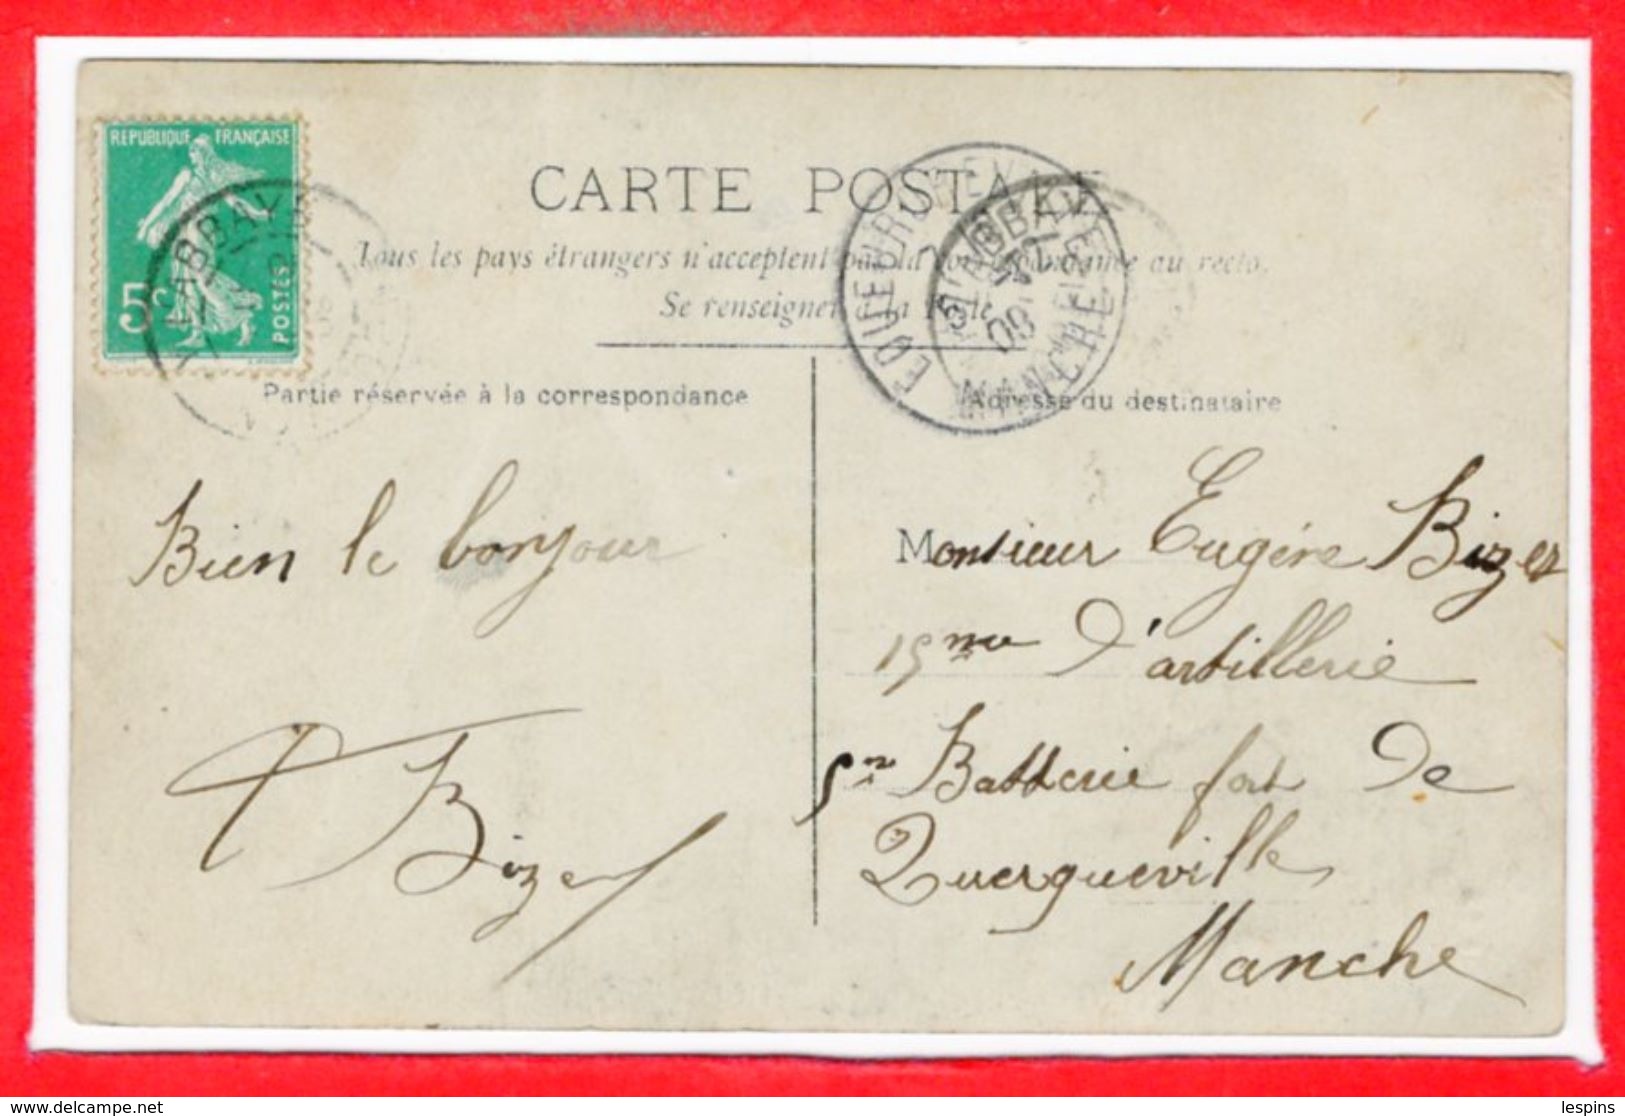 REPUBLIQUE FRANÇAISE
5c
POSTES
L'ABBAYE
CARTE POSTALE
Tous les pays étrangers n'acceptent pas la correspondance au recto.
Se renseigner à la Poste
EQUEURDREVILLE
MANCHE
L'ABBAYE
08
Partie réservée à la correspondance
Adresse du destinataire
Bien le bonjour
Bizet
Monsieur Eugène Bizet
15me d'artillerie
5me Batterie fort de
Querqueville
Manche
delcampe.net
lespins